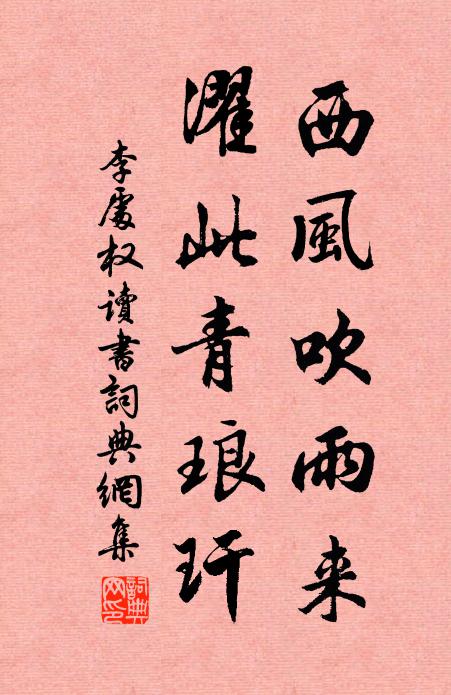 西風吹雨来
濯此青琅玕
李處权讀書詞典網集
詞典网印